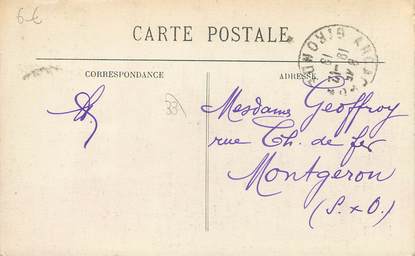 6€
CARTE POSTALE
CORRESPONDANCE
ADRESSE
33
Mesdames Geoffroy
rue Ch. de fer
Montgeron
(S. & O.)